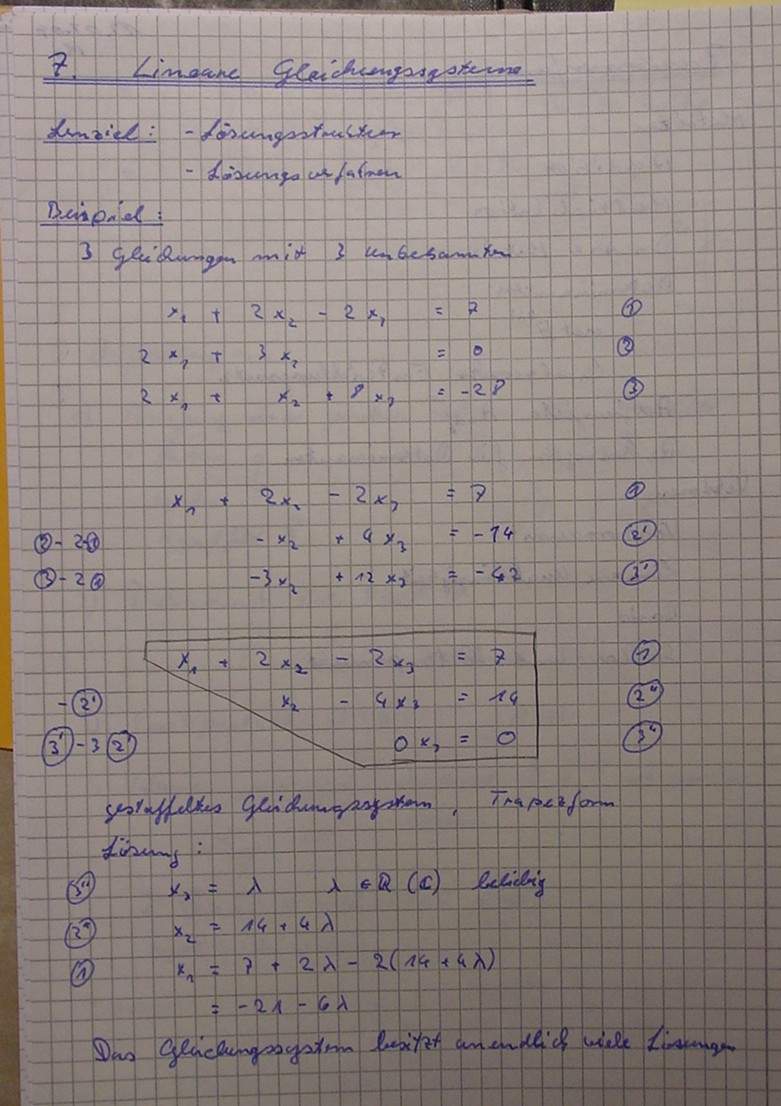 7. Lineare Gleichungssysteme
Lernziel: - Lösungsstruktur
- Lösungsverfahren
Beispiel:
3 Gleichungen mit 3 Unbekannten
x₁ + 2x₂ - 2x₃ = 7 ①
2x₁ + 3x₂ = 0 ②
2x₁ + x₂ + 8x₃ = -28 ③
x₁ + 2x₂ - 2x₃ = 7 ①
②-2① -x₂ + 4x₃ = -14 ②'
③-2① -3x₂ + 12x₃ = -42 ③'
x₁ + 2x₂ - 2x₃ = 7 ①
-②' x₂ - 4x₃ = 14 ②"
③'-3②' 0x₃ = 0 ③"
gestaffeltes Gleichungssystem, Trapezform
Lösung:
③" x₃ = λ λ ∈ ℝ (ℂ) beliebig
②" x₂ = 14 + 4λ
① x₁ = 7 + 2λ - 2(14+4λ)
= -21 - 6λ
Das Gleichungssystem besitzt unendlich viele Lösungen